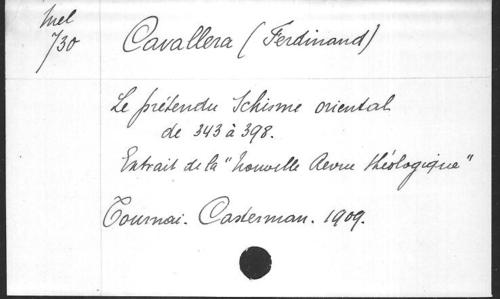 Mel
730
Cavallera (Ferdinand)
Le prétendu Schisme oriental
de 343 à 398.
Extrait de la "Nouvelle Revue théologique"
Tournai. Casterman. 1909.